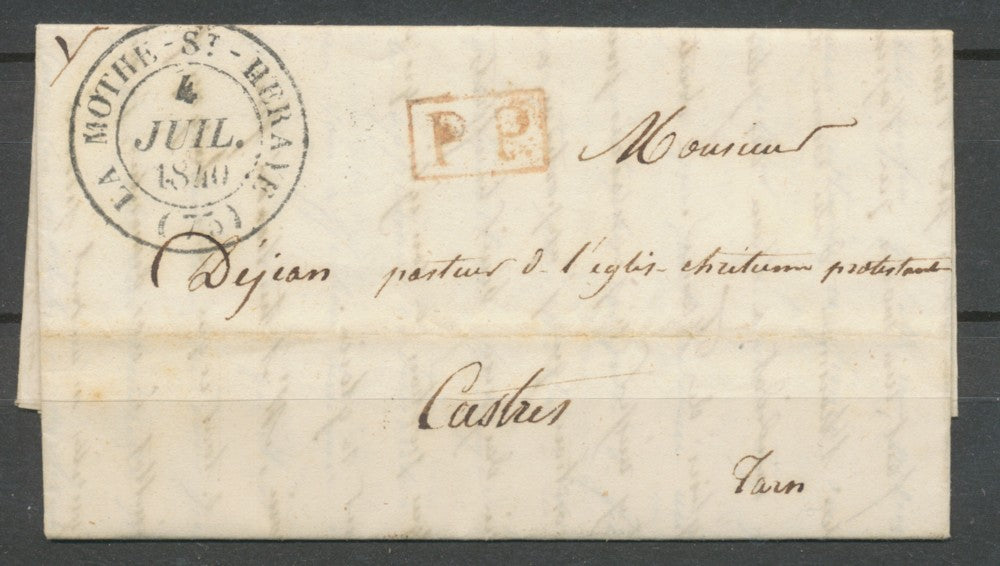 LA MOTHE-ST-HERAIE
4
JUIL.
1840
(75)
P P
Monsieur
Déjean pasteur d l'églis chrétienne protestante
Castres
Tarn